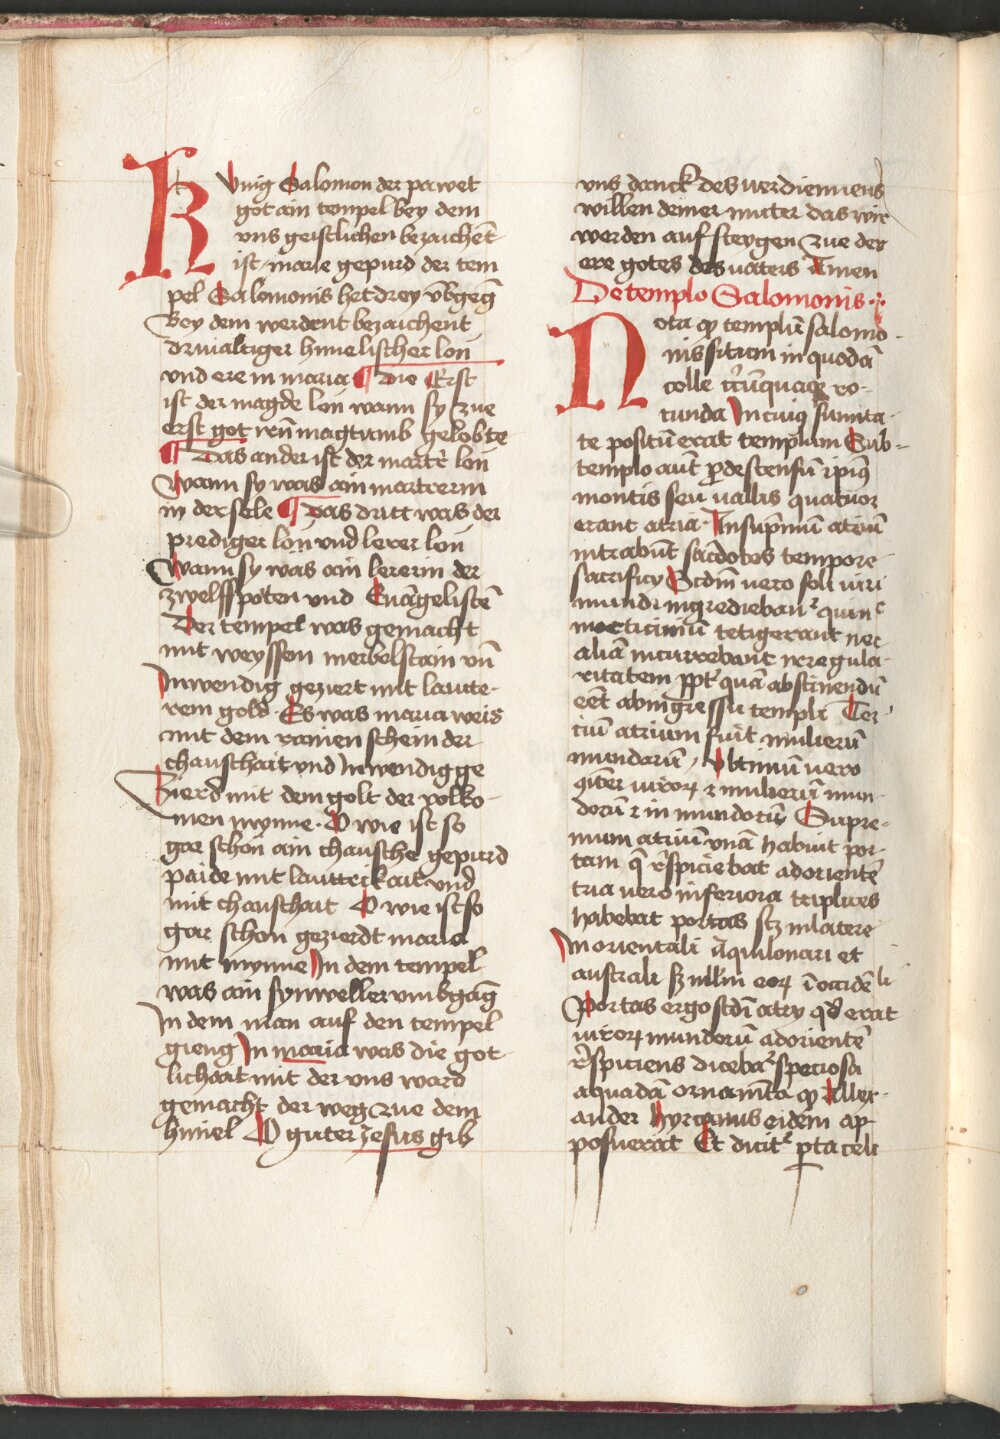 Kunig Salomon der pawet
got ain tempel bey dem
vns geistlichen bezaichēt
ist marie gepurd der tem
pel Salomonis het drey vb̄geng
Bey dem werdent bezaichent
drivaltiger himelischer lon
vnd ere in maria Die Erst
ist der magde lon wann sy zue
erst got irn̄ magtumb gelobte
Das ander ist der martrer lon
Wann sy was ain martrerin
in der sele Das dritt was der
prediger lon vnd lerer lon
Wann sy was ain lererin der
zwelfpoten vnd Ewāgelistē
Der tempel was gemacht
mit weyssen merbelstain vn̄
Inwendig geziert mit laute-
rem gold. Es was maria weis
mit dem rainen schein der
chauschait vnd Inwendig ge
Zierd mit dem golt der volko-
men mynne. O wie ist so
gar schon ain chausche gepurd
paide mit lautrikait vnd
mit chauschait O wie ist so
gar schon gezierdt maria
mit mynne In dem tempel
was ain synweller vmbgāg
In dem man auf den tempel
gieng In maria was die got-
lichait mit der vns ward
gemacht der weg zue dem
himel O guter Jesus gib
vns danck des verdiennens
willen deiner muter das wir
werden auf steygen zue der
ere gotes des vaters Amen
De templo Salomonis
Nota qꝫ templū salomo-
nis situm in quodā
colle circūquaqꝫ ro-
tunda In cuiꝰ sumita-
te positū erat templum Sub-
templo aut̄ ꝓ descensū ipiꝰ
montis seu vallis quatuor
erant atria. In sup̄mū atriū
intrabūt sac̄dotes tempore
sacrificij Scd̄m vero soli viri
mundi ingrediebant̄ qui nc̄
morticinium tetigerant nec
aliā incurrebant irregula-
ritatem ꝓpt̄ quā abstinendū
eēt ab ingressu templi Ter-
tiū atrium fuit mulierū
mundarū, Vltimū vero
ꝯiter virorꝫ ⁊ mulierū mun-
dorū ⁊ inmundorū Supre-
mum atriū vnā habuit por-
tam q̄ r̄spiciebat ad orientē
tria vero inferiora triplices
habebat portas scꝫ in latere
In orientali Aquilonari et
australi sꝫ nllm̄ eorꝫ ī occidēli
Portas ergo scd̄i atrij qd̄ erat
virorꝫ mundorū ad orientē
r̄spiciens dicebat̄ speciosa
a quadā ornamēta qꝫ Allex-
ander hyrcanus eidem ap-
posuerat Et dicit̄ porta celi